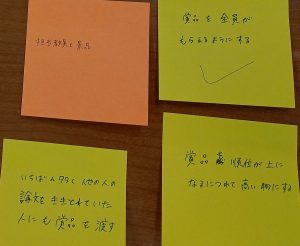 担当教員と景品
賞品を全員が
もらえるようにする
いちばん多く他の人の
論文を
人にも賞品を渡す
賞品 順位が上に
なるにつれて高い物にする